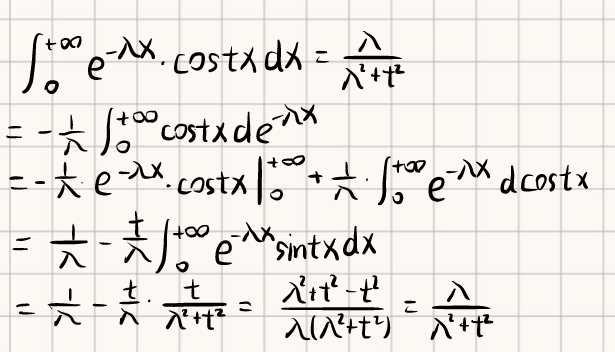 ∫₀^{+∞} e^{-λx}·costx dx = λ/(λ²+t²)
= -1/λ ∫₀^{+∞} costx de^{-λx}
= -1/λ·e^{-λx}·costx |₀^{+∞} + 1/λ·∫₀^{+∞} e^{-λx} dcostx
= 1/λ - t/λ ∫₀^{+∞} e^{-λx} sintx dx
= 1/λ - t/λ · t/(λ²+t²) = (λ²+t²-t²)/(λ(λ²+t²)) = λ/(λ²+t²)